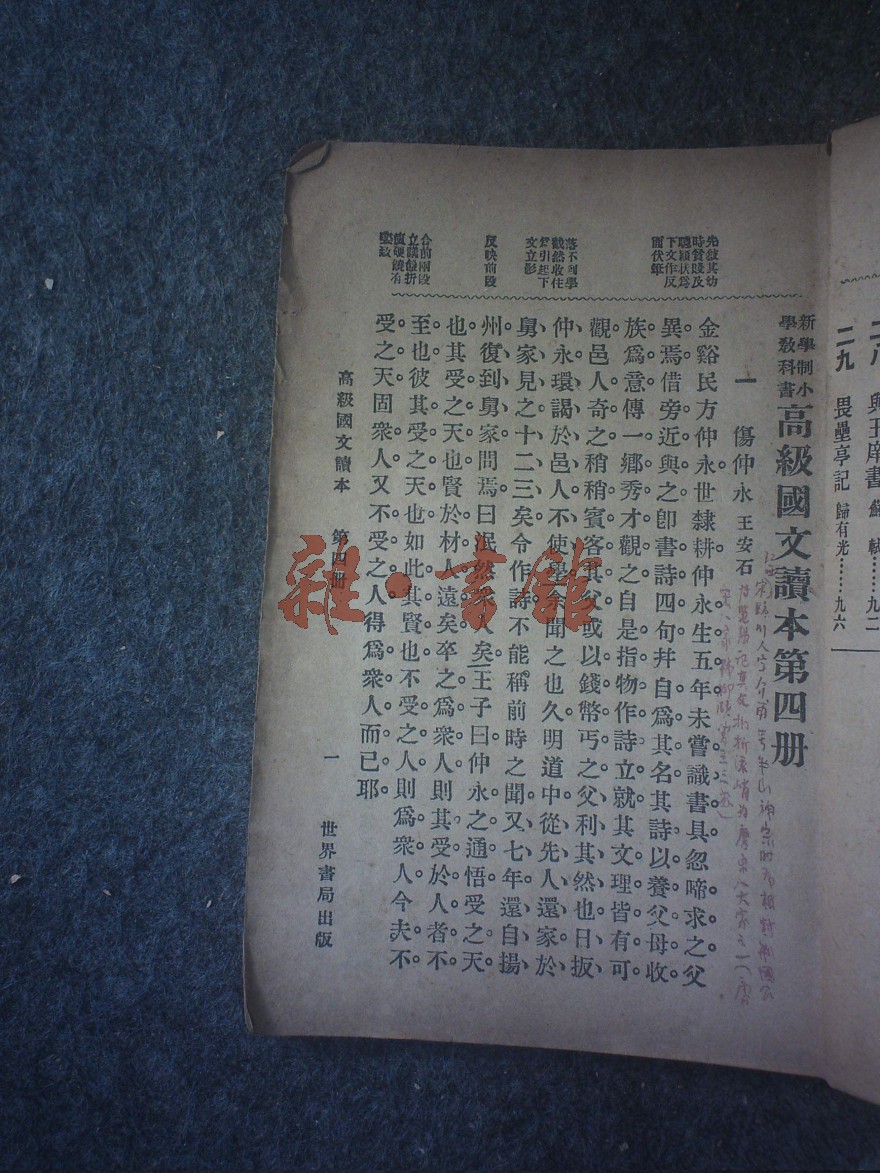 二九 畏壘亭記 歸有光……九六
新學制小
學教科書
高級國文讀本第四册
一 傷仲永 王安石
金谿民方仲永世隸耕仲永生五年未嘗識書具忽啼求之父
異焉借旁近與之卽書詩四句幷自爲其名其詩以養父母收
族爲意傳一鄉秀才觀之自是指物作詩立就其文理皆有可
觀邑人奇之稍稍賓客其父或以錢幣丐之父利其然也日扳
仲永環謁於邑人不使學余聞之也久明道中從先人還家於
舅家見之十二三矣令作詩不能稱前時之聞又七年還自揚
州復到舅家問焉曰泯然衆人矣王子曰仲永之通悟受之天
也其受之天也賢於材人遠矣卒之爲衆人則其受於人者不
至也彼其受之天也如此其賢也不受之人則爲衆人今夫不
受之天固衆人又不受之人得爲衆人而已耶
先敍其幼
時聰及
下文作反
面伏筆
落不到學
截然收住
引起下
文立影
反映前段
合前兩段
高級國文讀本 第四册
一
世界書局出版
雜·書館